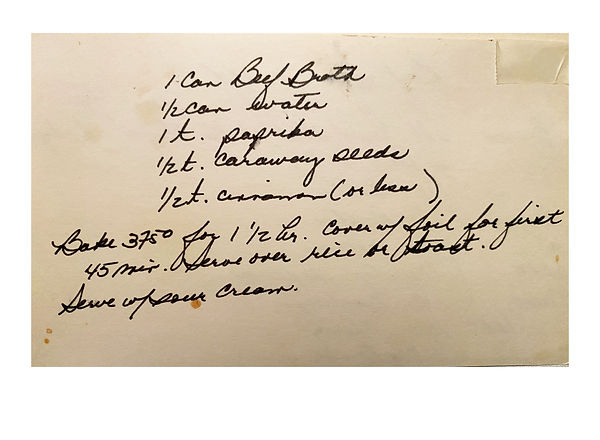 1 Can Beef Broth
1/2 can water
1 t. paprika
1/2 t. caraway seeds
1/2 t. cinnamon (or less)
Bake 375° for 1 1/2 hr. Cover w/ foil for first
45 min. Serve over rice or toast.
Serve w/ sour cream.